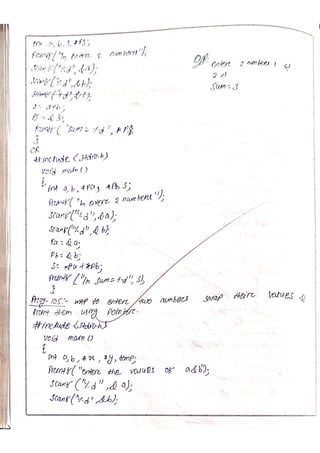 int a, b, s, *Ps;
Printf("\n enter 2 numbers");
scanf("%d", &a);
scanf("%d", &b);
s = a+b;
Ps = &s;
Printf("sum = %d", *Ps);
}
O/P
enter 2 numbers 1
2
sum = 3
OR
#include <stdio.h>
void main()
{
int a, b, *Pa, *Pb, s;
Printf("\n enter 2 numbers");
scanf("%d", &a);
scanf("%d", &b);
Pa = &a;
Pb = &b;
s = *Pa + *Pb;
Printf("\n sum = %d", s);
}
Prog-105:- WAP to enter two numbers swap their values &
Print them using pointer.
#include <stdio.h>
void main()
{
int a, b, *x, *y, temp;
Printf("enter the values of a&b);
scanf("%d", &a);
scanf("%d", &b);